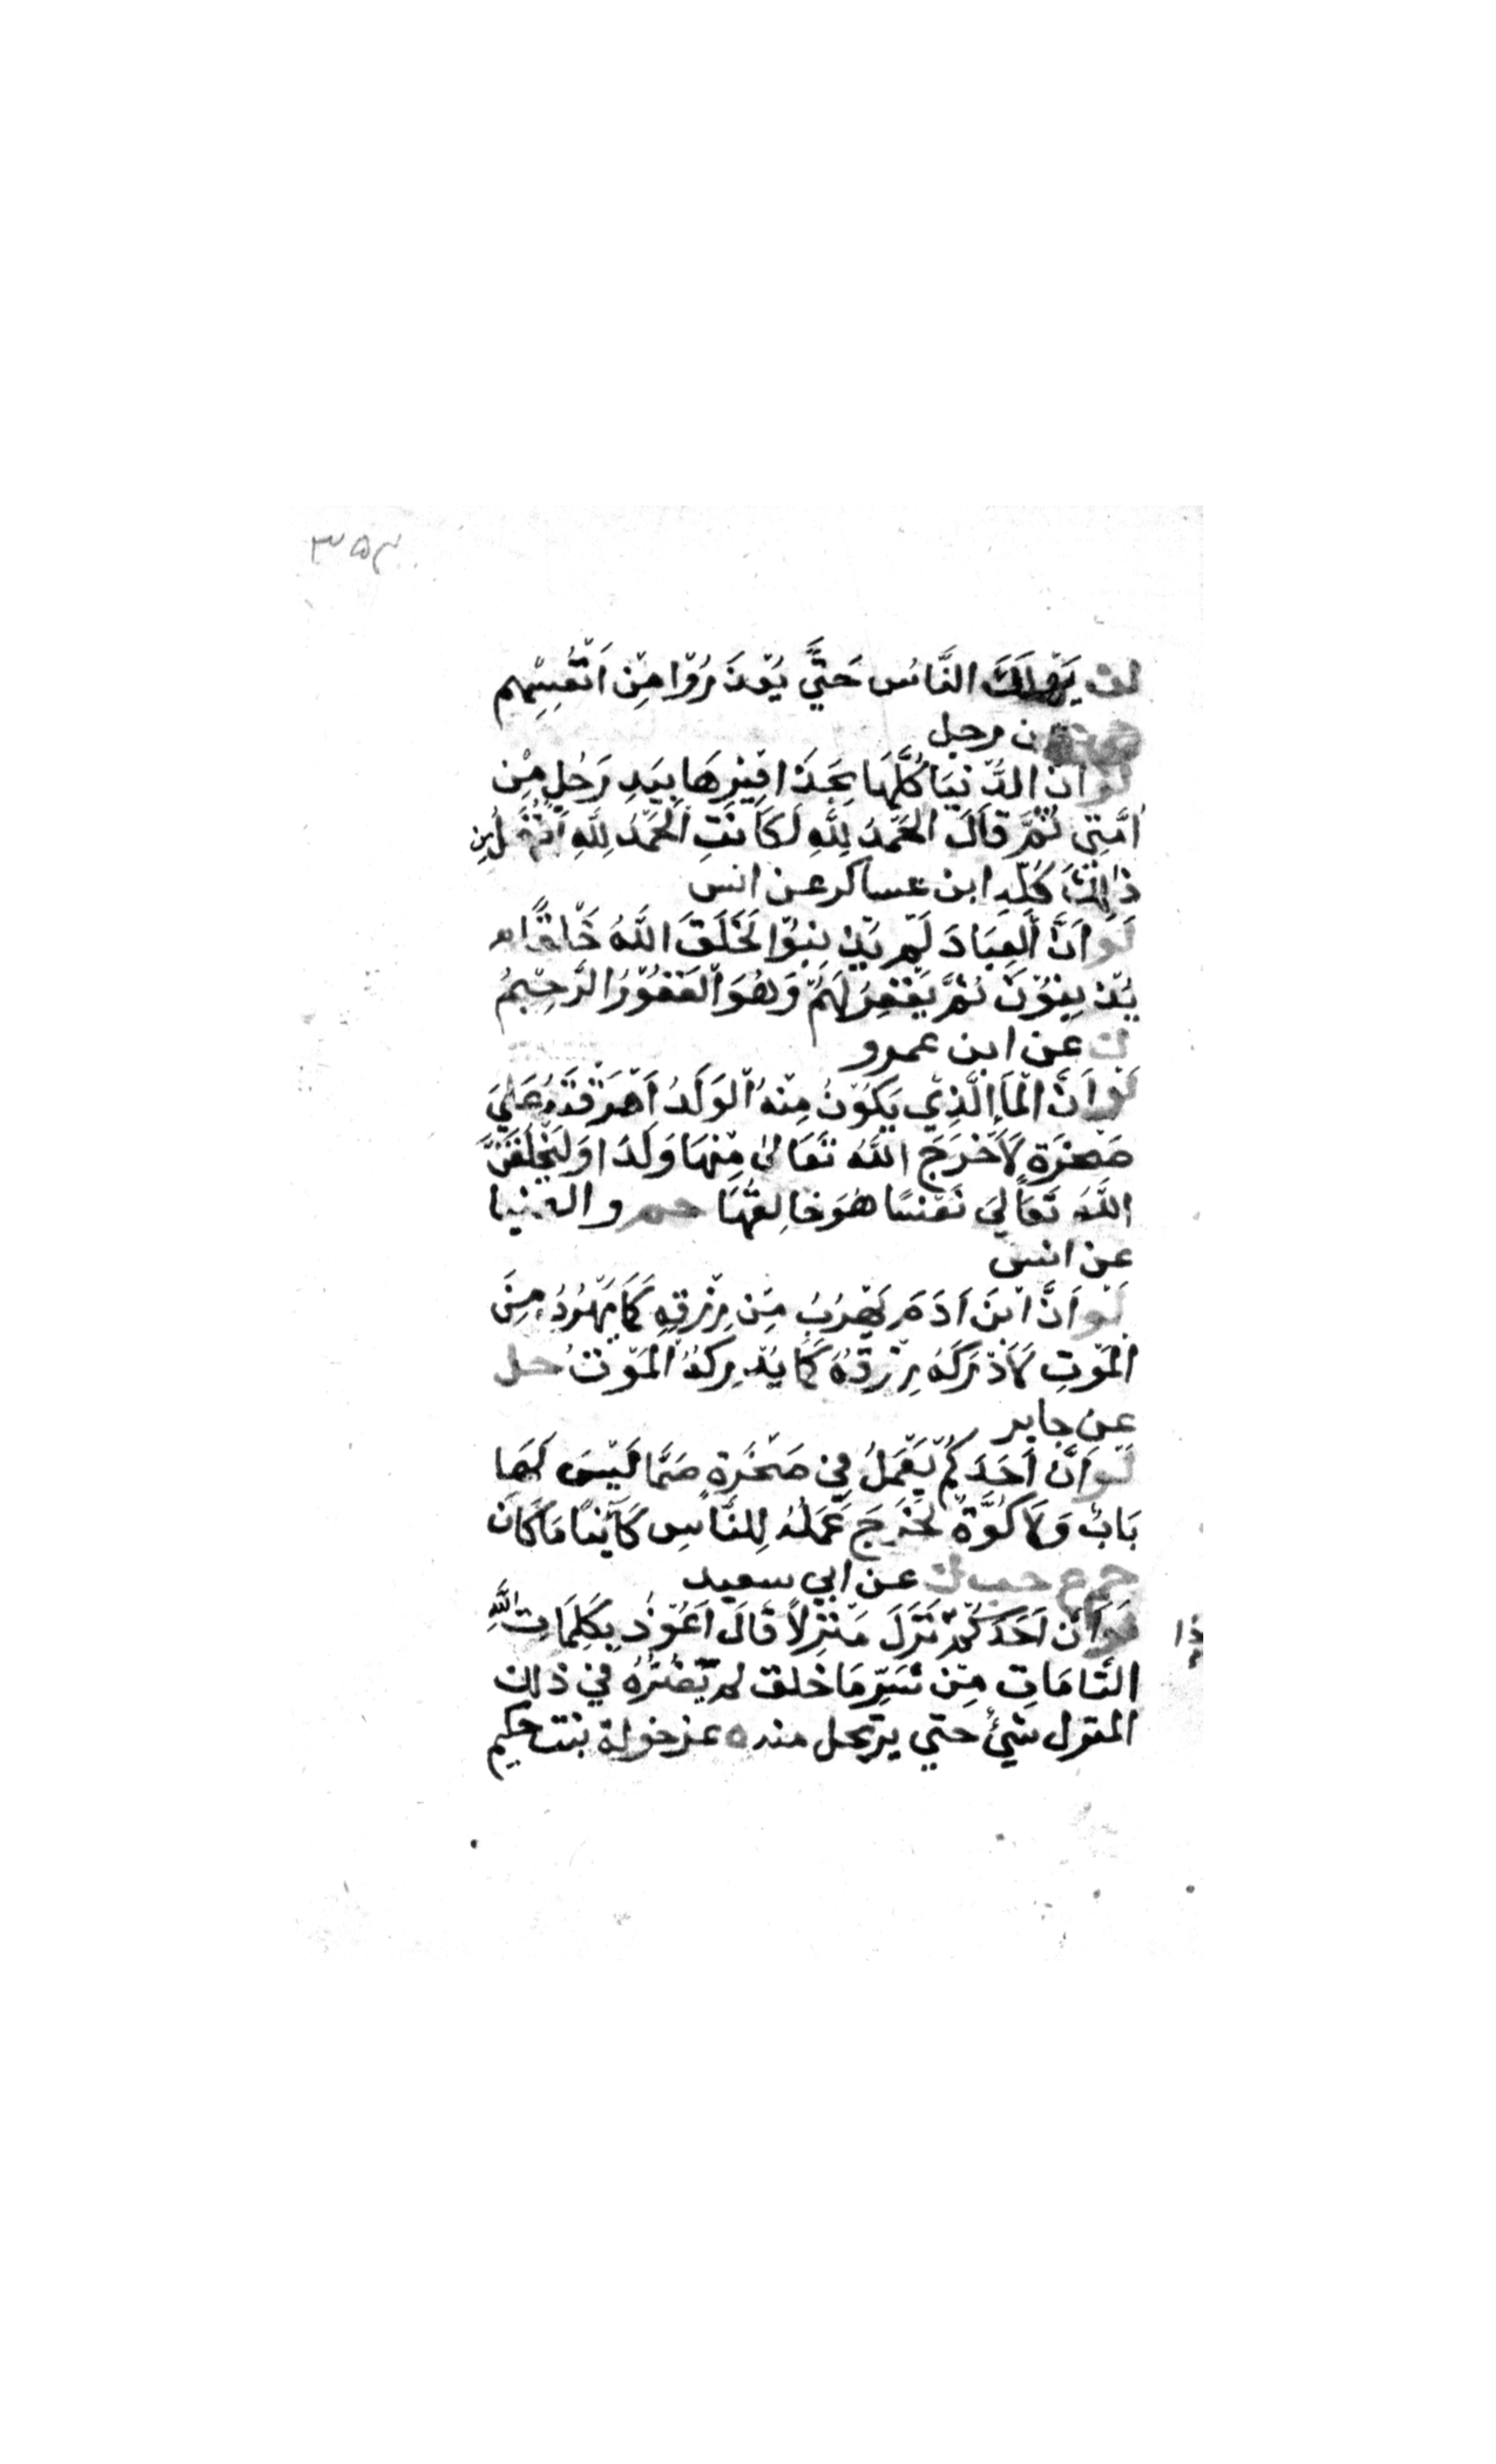 ٣٥٢
لن يَهْلَكَ النَّاسُ حَتَّي يُعْذَرُوْا مِنْ اَنْفُسِهِم
عن رجل
لو ان الدُّنْيَا كُلَّهَا بِحَذَافِيْرِهَا بِيَدِ رَجُلٍ مِنْ
اُمَّتِى ثُمَّ قَالَ الْحَمْدُ لِلّٰهِ لَكَانَتِ الْحَمْدُ لِلّٰهِ اَفْضَلُ مِن
ذٰلِكَ كُلِّهِ ابن عساكر عن انس
لَوْ اَنَّ الْعِبَادَ لَمْ يُذْنِبُوْا لَخَلَقَ اللّٰهُ خَلْقًا
يُذْنِبُوْنَ ثُمَّ يَغْفِرُ لَهُمْ وَهُوَ الْغَفُوْرُ الرَّحِيْمُ
ك عن ابن عمرو
لَوْ اَنَّ الْمَاءَ الَّذِيْ يَكُوْنُ مِنْهُ الْوَلَدُ اَهْرَقْتَهُ عَلَيَ
صَخْرَةٍ لَاَخْرَجَ اللّٰهُ تَعَالٰى مِنْهَا وَلَدًا وَلَيَخْلُقَنَّ
اللّٰهُ تَعَالَيَ نَفْسًا هُوَ خَالِقُهَا حم والضيا
عن انس
لَوْ اَنَّ ابْنَ اٰدَمَ يَهْرُبُ مِنْ رِزْقِهِ كَمَا يَهْرُبُ مِنَ
الْمَوْتِ لَاَدْرَكَهُ رِزْقُهُ كَمَا يُدْرِكُهُ الْمَوْتُ حل
عن جابر
لَوْ اَنَّ اَحَدَكُمْ يَعْمَلُ فِي صَخْرَةٍ صَمَّا لَيْسَ لَهَا
بَابٌ وَلَا كُوَّةٌ لَخَرَجَ عَمَلُهُ لِلنَّاسِ كَائِنًا مَا كَانَ
حم ع حب ك عن ابي سعيد
لَوْ اَنَّ اَحَدَكُمْ نَزَلَ مَنْزِلًا قَالَ اَعُوْذُ بِكَلِمَاتِ اللّٰهِ
اِذَا
التَّامَّاتِ مِنْ شَرِّ مَا خَلَق لم يَضُرُّهُ في ذلك
المنزل شَيْئٌ حتي يرتحل منه ه عن خولة بنت حكيم